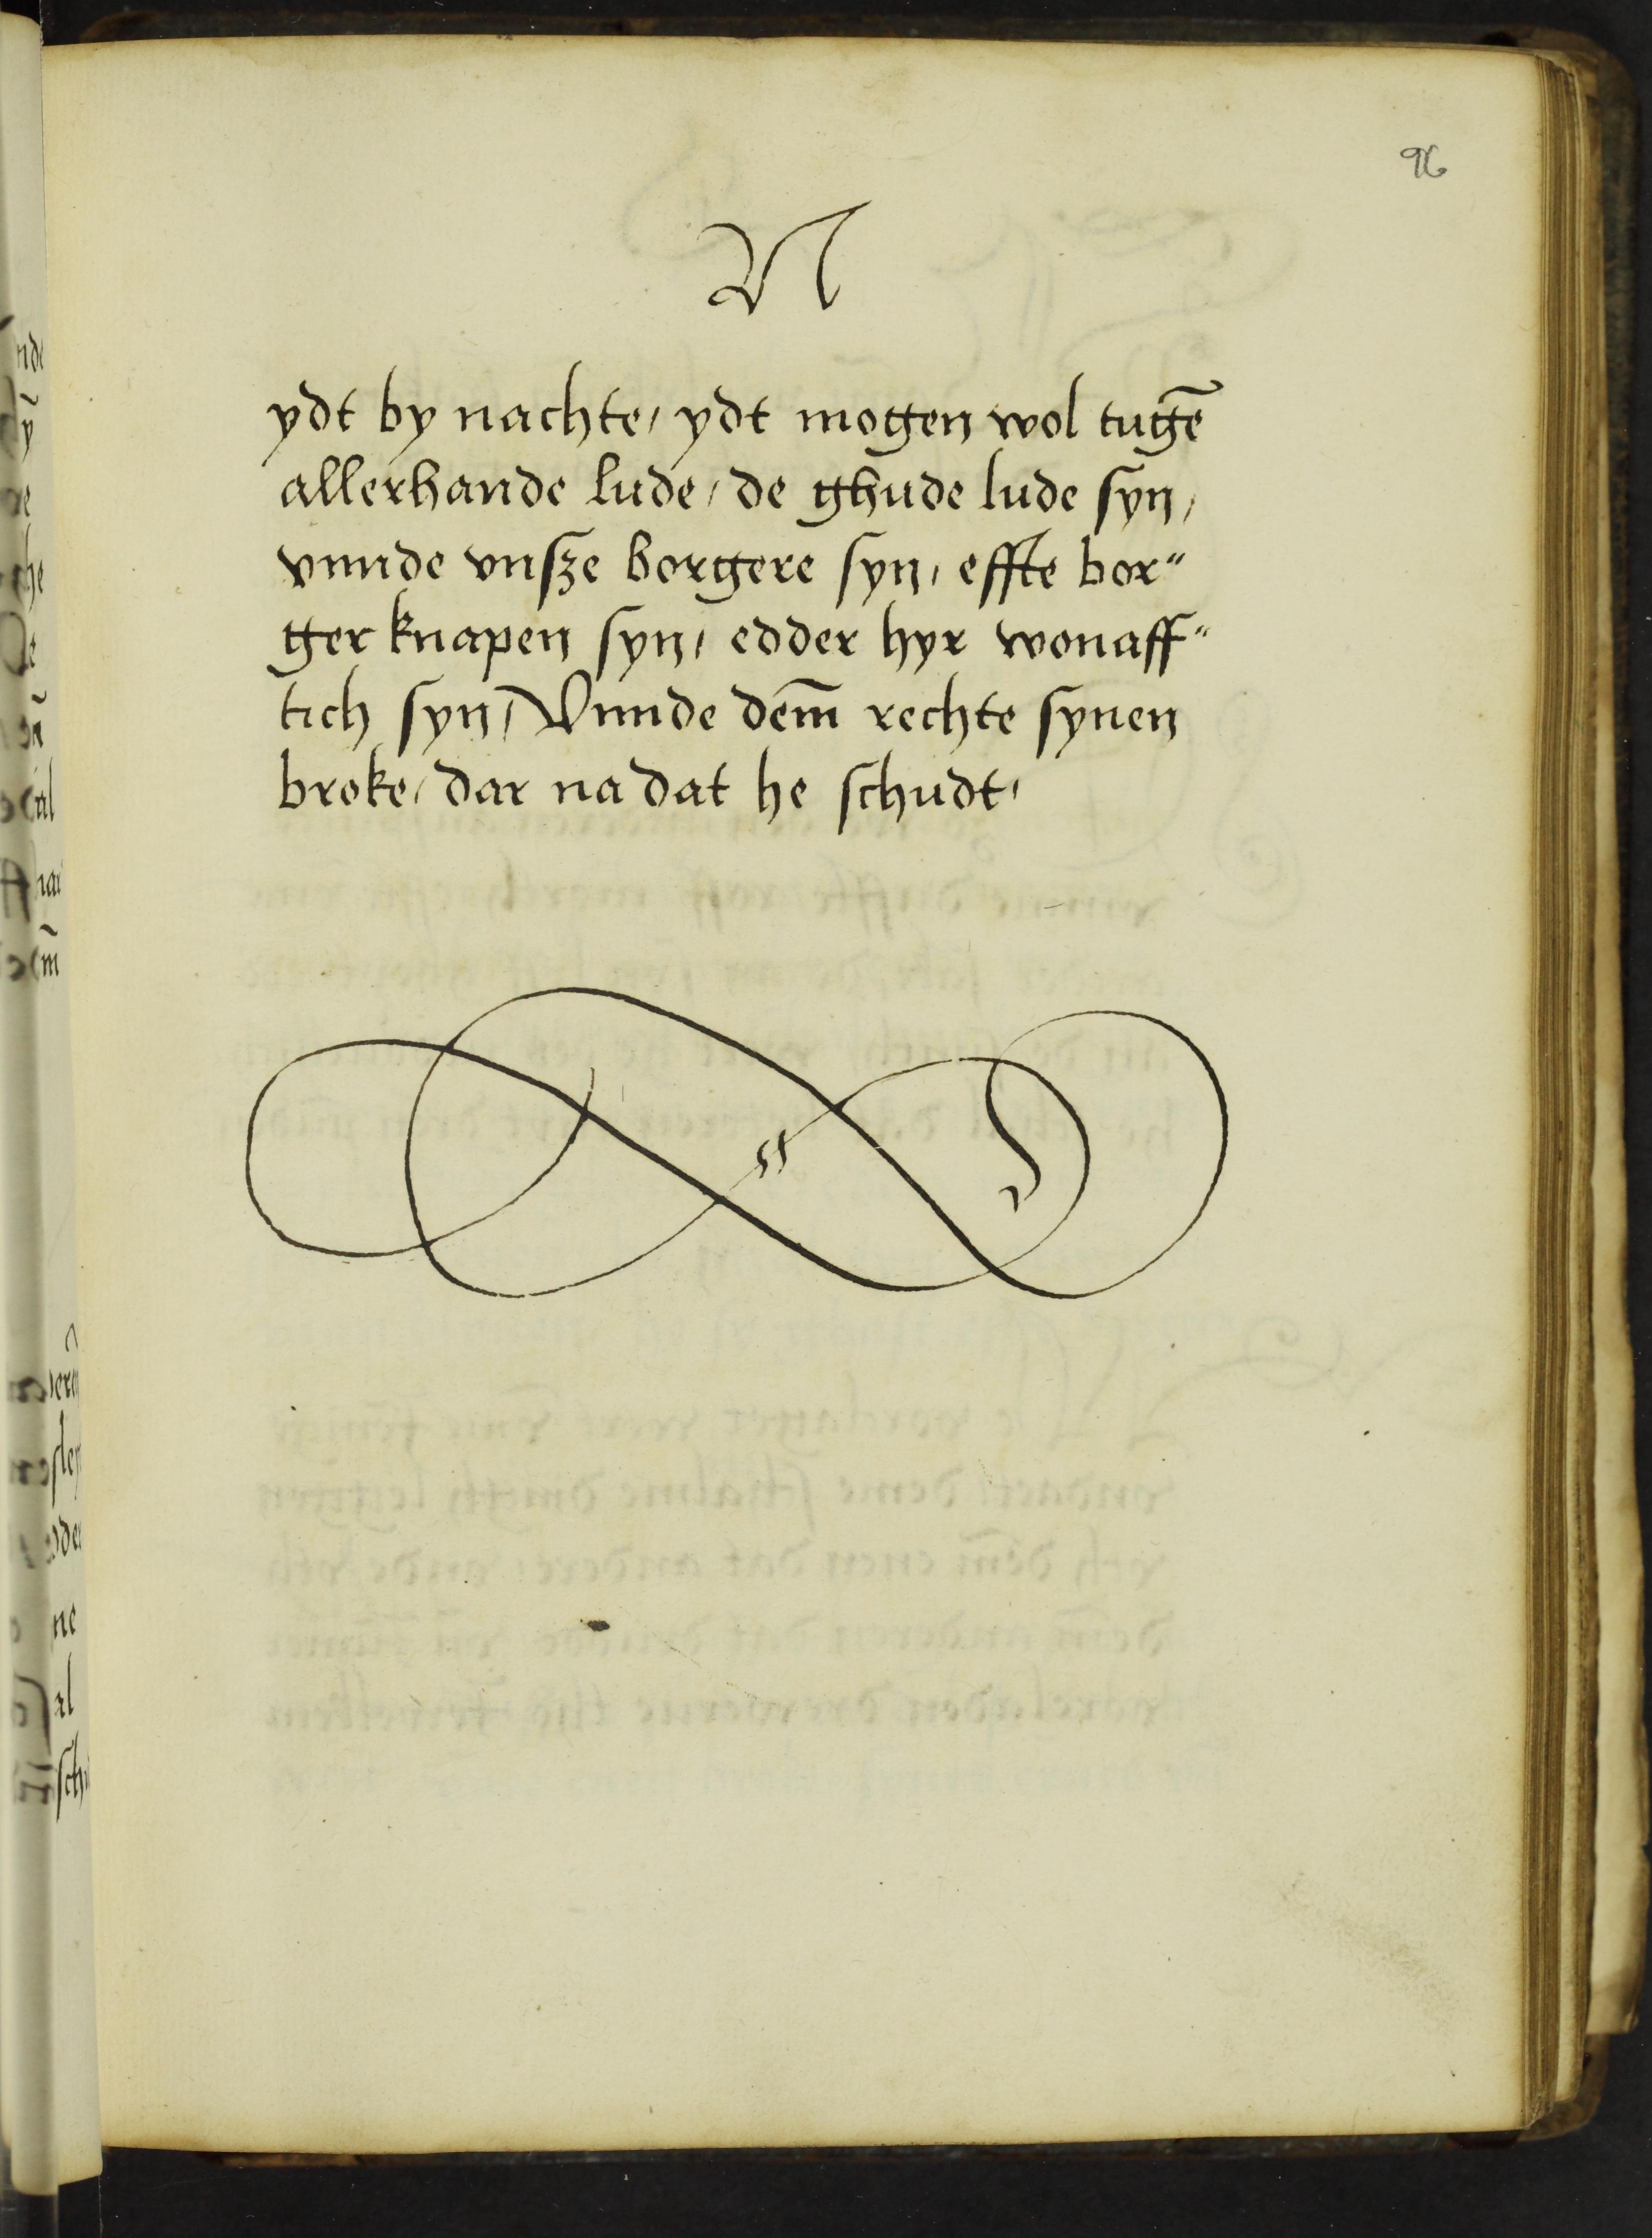 96
N
ydt by nachte, ydt mogen wol tugē
allerhande lude, de ghude lude syn,
vnnde vnsze borgere syn, effte bor"
ger knapen syn, edder hyr wonaff"
tich syn, Vnnde dem̄ rechte synen
broke, dar na dat he schudt,